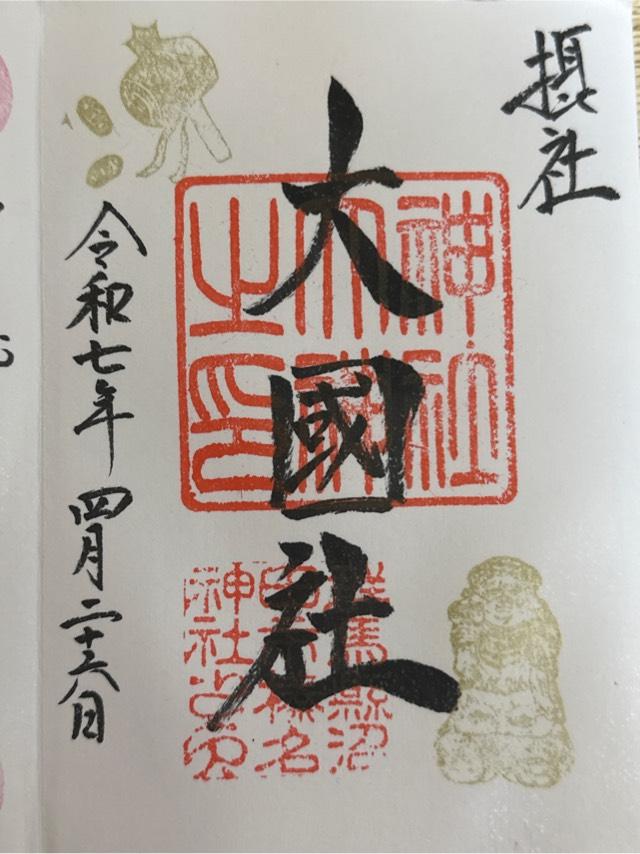 摂社
大國社
令和七年四月二十六日
神社
之印
群馬縣沼
田市榛名
神社之印